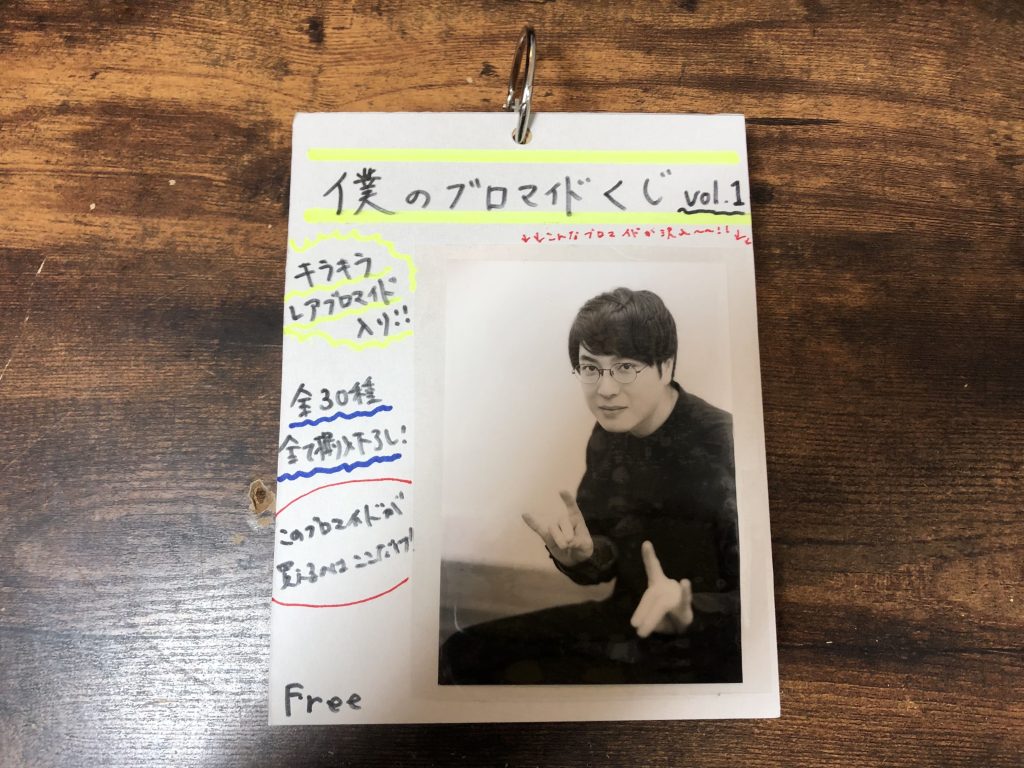 僕のブロマイドくじ vol.1
↓↓こんなブロマイドが沢山〜〜!!↓↓
キラキラ
レアブロマイド
入り!!
全30種
全て撮り下ろし!
このブロマイドが
買えるのはここだけ!
Free